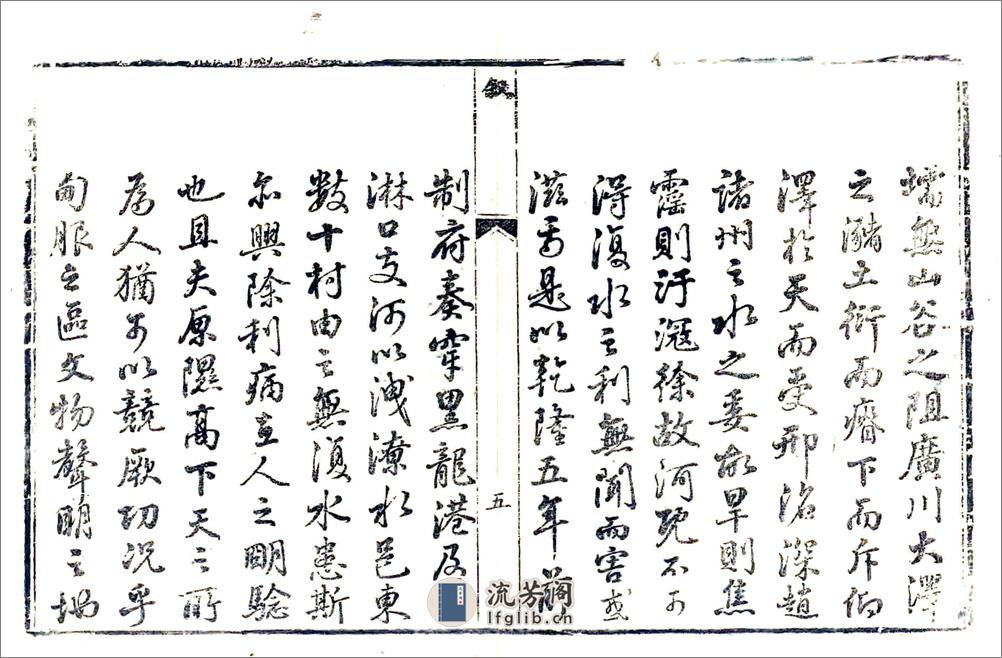 壖無山谷之阻廣川大澤
之瀦土衍而瘠下而斥仰
澤於天而受邢洺深趙
諸州之水之委故旱則焦
霪則汙滱徐故河既不可
得復水之利無聞而害或
滋焉是以乾隆五年前
敘
五
制府奏穿黑龍港及
淋口支河以洩潦水邑東
數十村由之無復水患斯
亦興除利病在人之明驗
也且夫原隰高下天之所
為人猶可以競厥功況乎
甸服之區文物聲明之
流芳閣
lfglib.cn